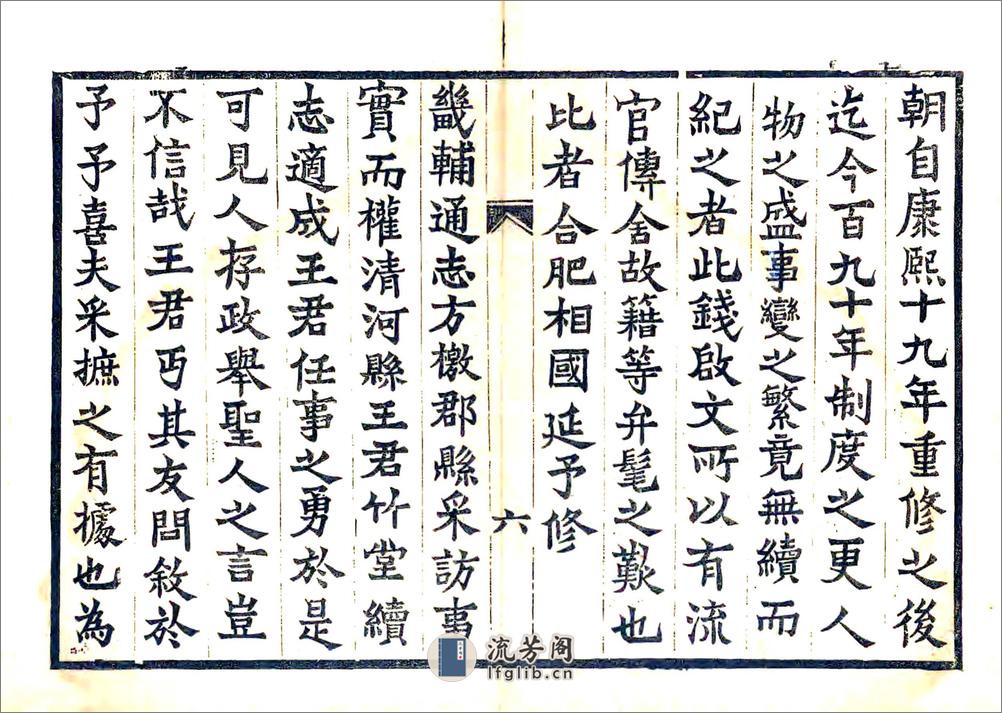 朝自康熙十九年重修之後
迄今百九十年制度之更人
物之盛事變之繁竟無續而
紀之者此錢啟文所以有流
官傳舍故籍等弁髦之艱也
比者合肥相國延予修
六
畿輔通志方檄郡縣采訪事
實而權清河縣王君竹堂續
志適成王君任事之勇於是
可見人存政舉聖人之言豈
不信哉王君丐其友問敘於
予予喜夫采摭之有據也為
流芳阁
lfglib.cn